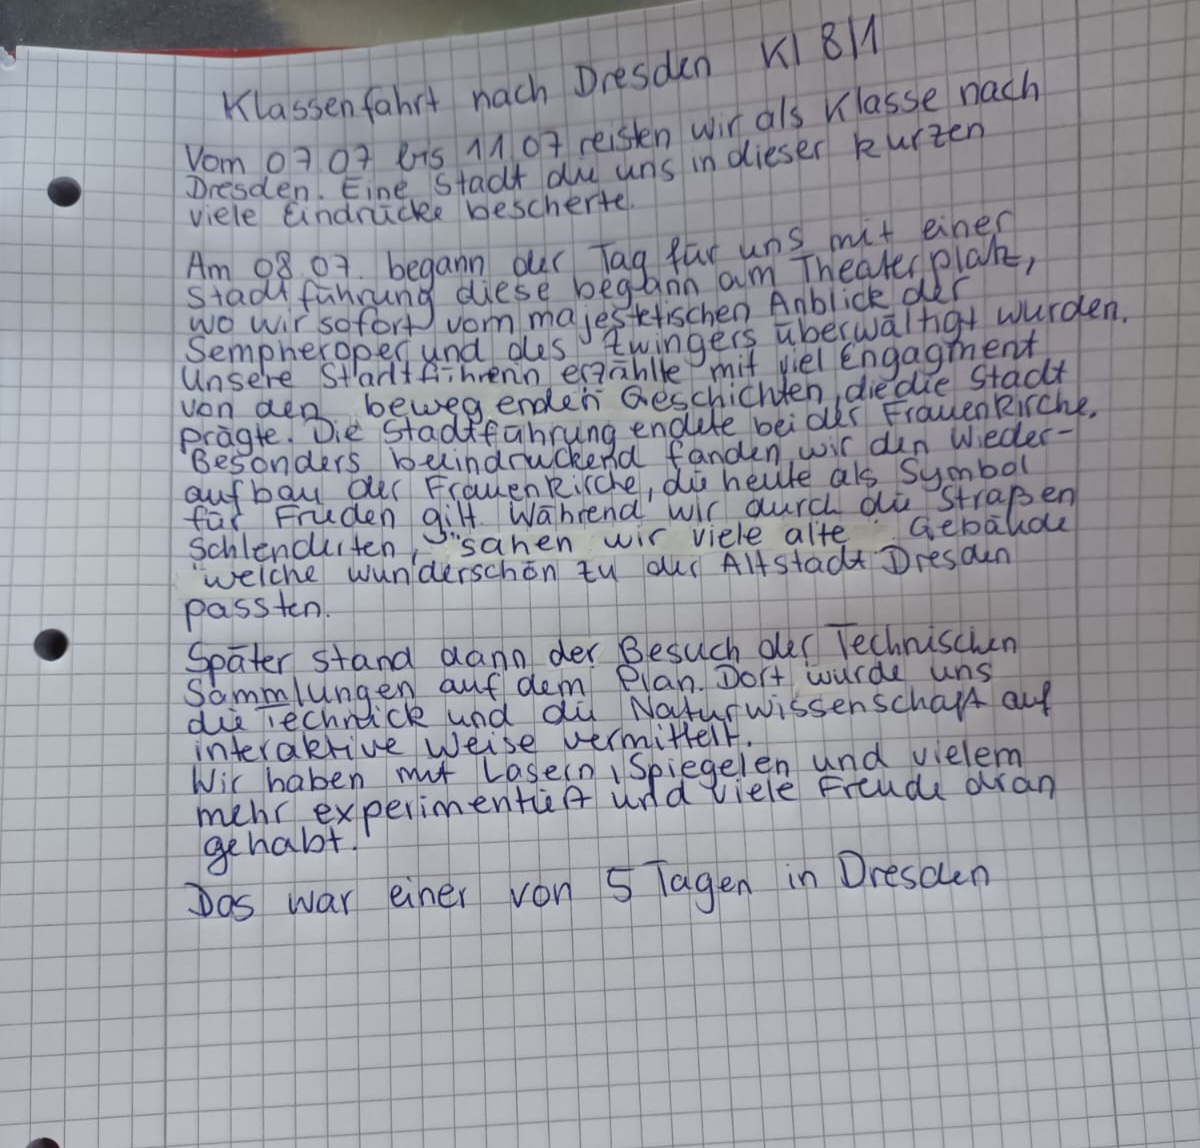 Klassenfahrt nach Dresden Kl 8/1
Vom 07 07 bis 11 07 reisten wir als Klasse nach
Dresden. Eine Stadt die uns in dieser kurzen
viele Eindrücke bescherte.
Am 08 07. begann der Tag für uns mit einer
Stadtführung diese begann am Theaterplatz,
wo wir sofort vom majestetischen Anblick der
Sempheroper und des Zwingers überwältigt wurden.
Unsere Stadtführerin erzählte mit viel Engagment
von den bewegenden Geschichten, die die Stadt
prägte. Die Stadtführung endete bei der Frauenkirche.
Besonders beeindruckend fanden wir den Wieder-
aufbau der Frauenkirche, die heute als Symbol
für Frieden gilt. Während wir durch die Straßen
schlenderten, sahen wir viele alte Gebäude
welche wunderschön zu der Altstadt Dresden
passten.
Später stand dann der Besuch der Technischen
Sammlungen auf dem Plan. Dort wurde uns
die Technick und die Naturwissenschaft auf
interaktive Weise vermittelt.
Wir haben mit Lasern, Spiegelen und vielem
mehr experimentiert und viele Freude dran
gehabt.
Das war einer von 5 Tagen in Dresden